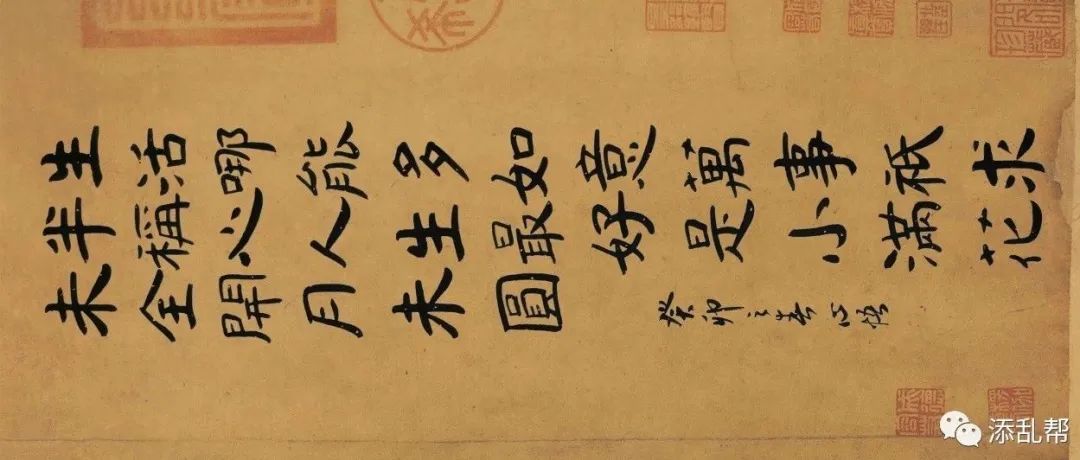 生活哪能多如意萬事祇求
半稱心人生最好是小滿花
未全開月未圓
癸卯之春
添乱帮